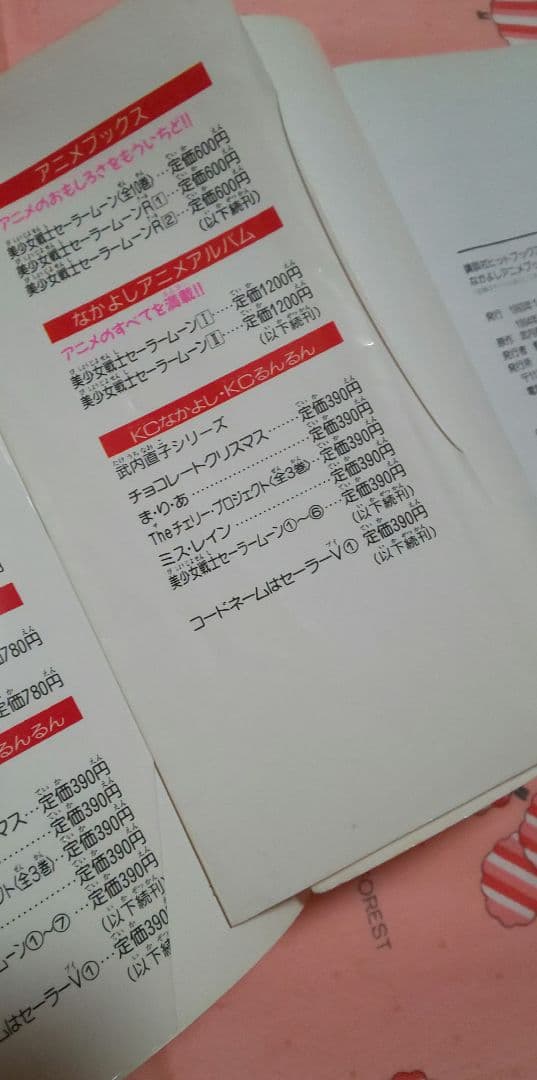 アニメブックス
アニメのおもしろさをもういちど!!
美少女戦士セーラームーン(全10巻)…定価600円
美少女戦士セーラームーンR1…定価600円
美少女戦士セーラームーンR2…定価600円
(以下続刊)
なかよしアニメアルバム
アニメのすべてを満載!!
美少女戦士セーラームーンⅠ……定価1200円
美少女戦士セーラームーンⅡ……定価1200円
(以下続刊)
KCなかよし・KCるんるん
武内直子シリーズ
チョコレートクリスマス……定価390円
ま・り・あ……定価390円
Theチェリー・プロジェクト(全3巻)…定価390円
ミス・レイン……定価390円
美少女戦士セーラームーン①~⑥…定価390円
(以下続刊)
コードネームはセーラーV① 定価390円
(以下続刊)
780円
定価780円
るんるん
マス…定価390円
定価390円
クト(全3巻)…定価390円
定価390円
ムーン①~⑦…定価390円
(以下続刊)
ムはセーラーV①…定価390
(以下続刊)
講談社ヒットブック
なかよしアニメブック
発行
原作
発行者
発行所
FOREST